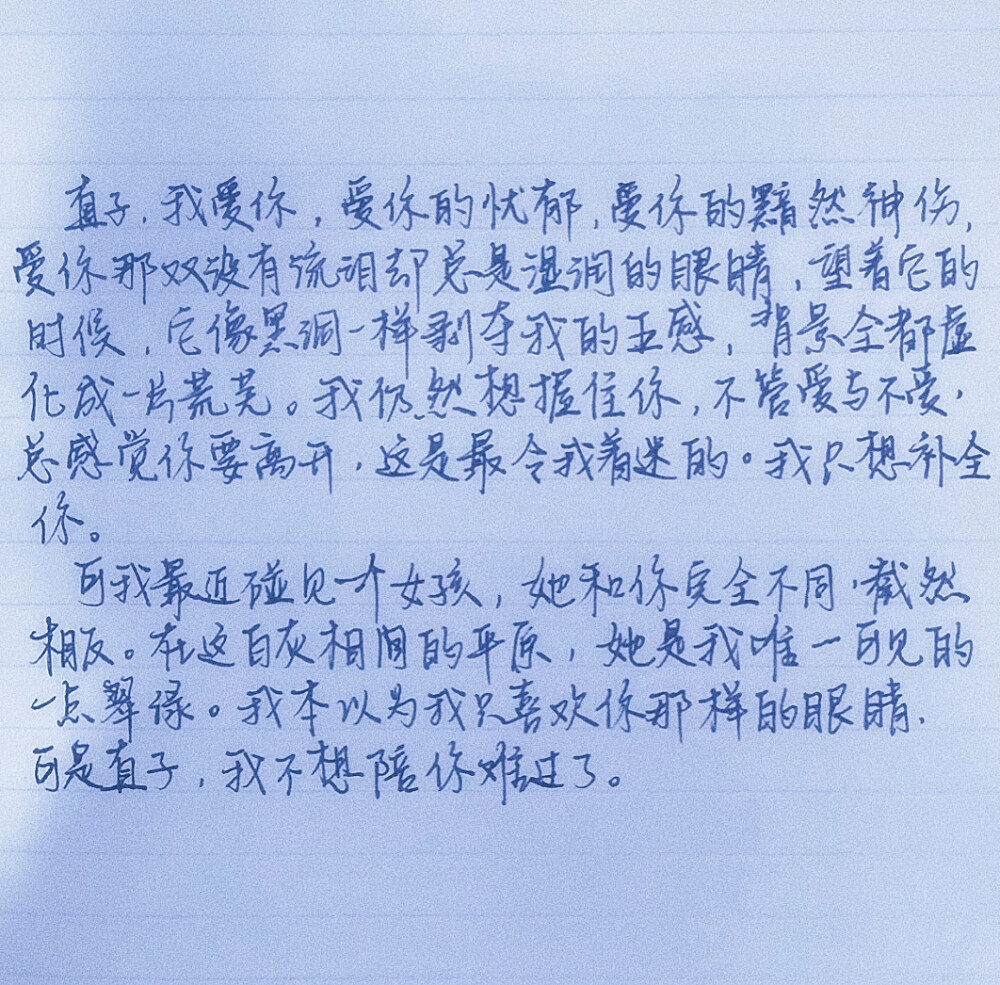 直子，我爱你，爱你的忧郁，爱你的黯然神伤，
爱你那双没有流泪却总是湿润的眼睛，望着它的
时候，它像黑洞一样剥夺我的五感，背景全都虚
化成一片荒芜。我仍然想握住你，不管爱与不爱，
总感觉你要离开，这是最令我着迷的。我只想补全
你。
可我最近碰见一个女孩，她和你完全不同，截然
相反。在这白灰相间的平原，她是我唯一可见的
一点翠绿。我本以为我只喜欢你那样的眼睛，
可是直子，我不想陪你难过了。